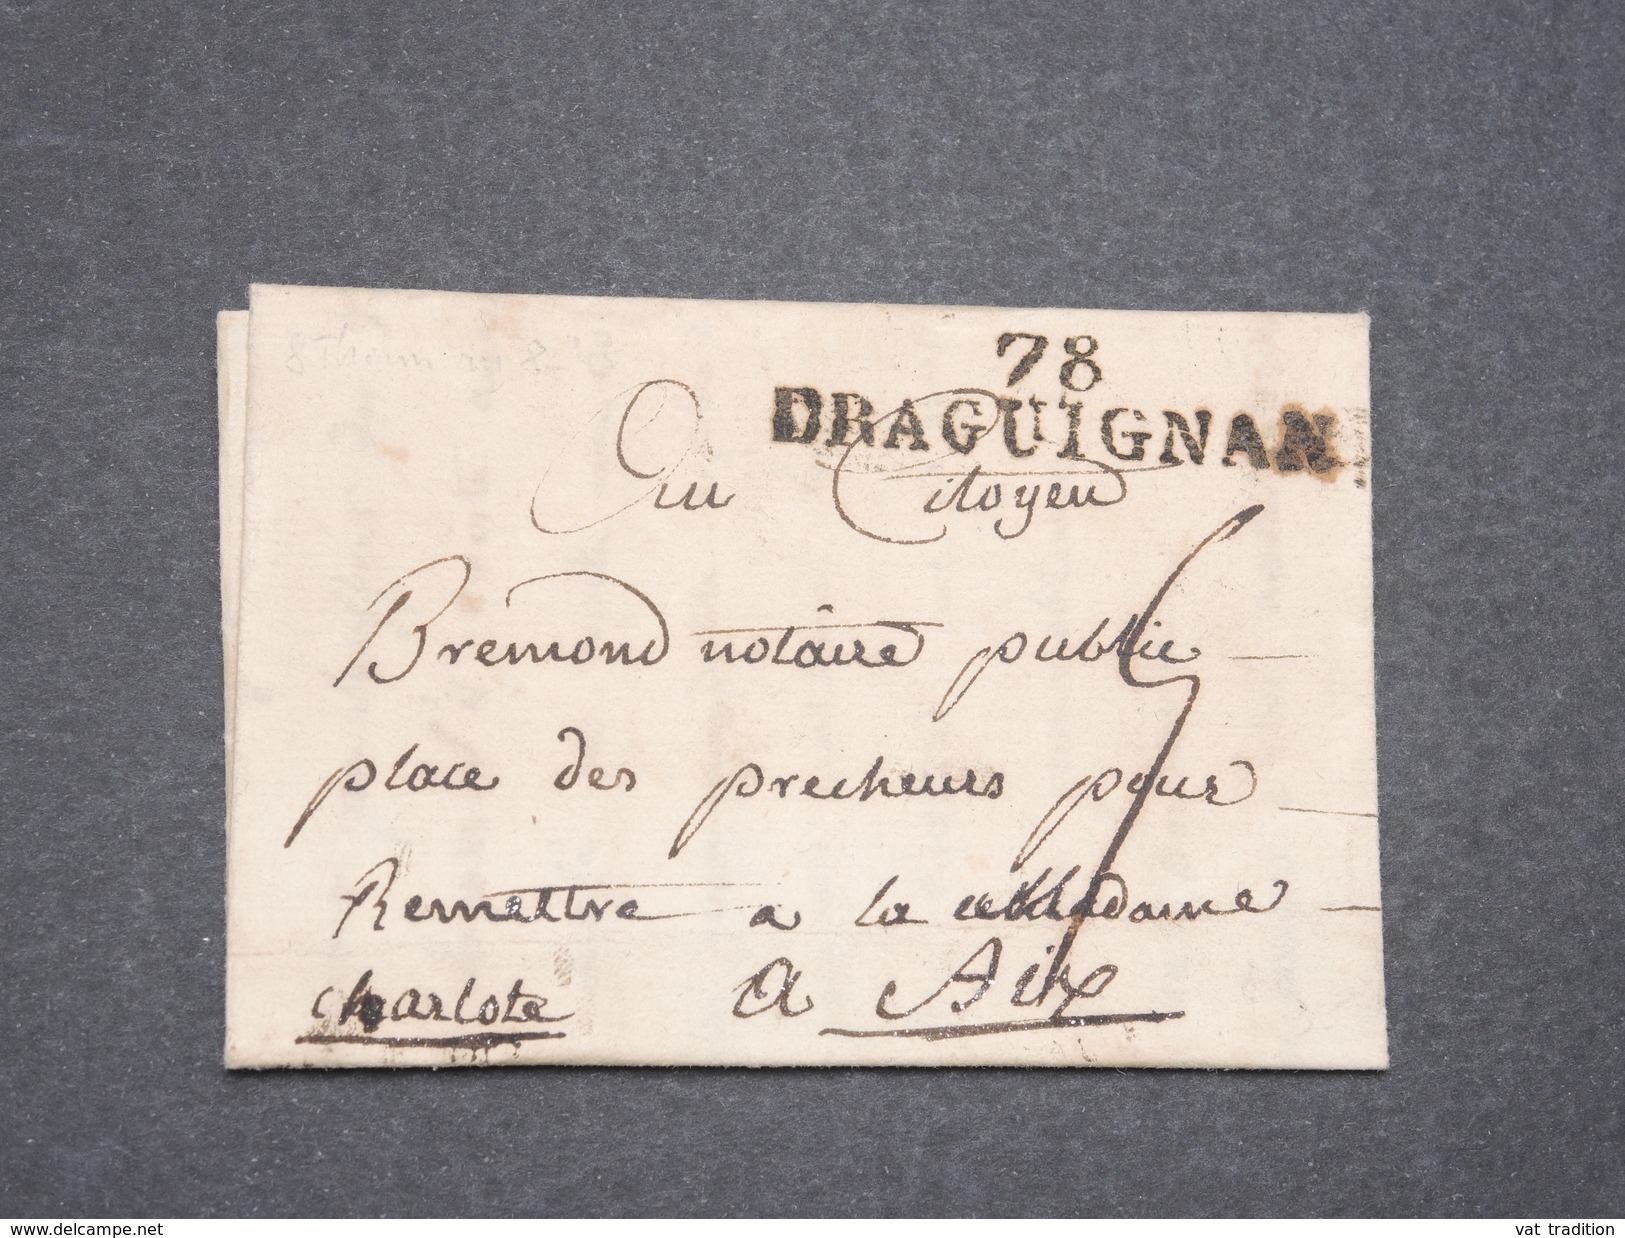 78
DRAGUIGNAN
Au Citoyen
Bremond notaire public
place des precheurs pour
Remettre a la Madame
charlote a Aix
delcampe.net
vat tradition